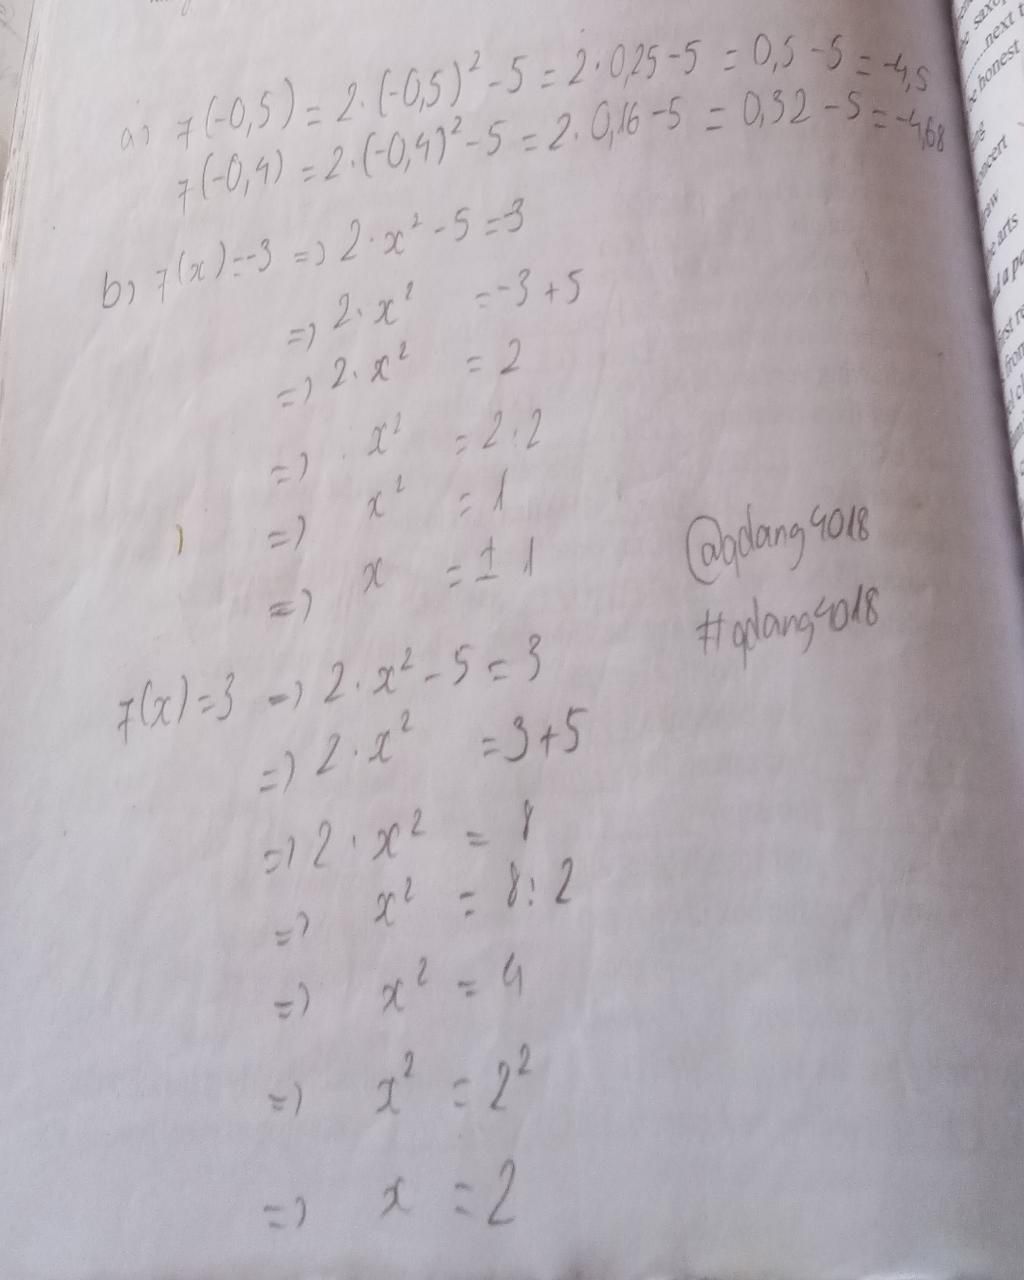 a) f(-0,5) = 2·(-0,5)² - 5 = 2·0,25 - 5 = 0,5 - 5 = -4,5
f(-0,4) = 2·(-0,4)² - 5 = 2·0,16 - 5 = 0,32 - 5 = -4,68
b) f(x) = -3 => 2·x² - 5 = -3
=> 2·x² = -3 + 5
=> 2·x² = 2
=> x² = 2:2
=> x² = 1
=> x = ± 1
@qdang4018
#qdang4018
f(x) = 3 => 2·x² - 5 = 3
=> 2·x² = 3 + 5
=> 2·x² = 8
=> x² = 8:2
=> x² = 4
=> x² = 2²
=> x = 2
next t
honest
concert
raw
arts
from